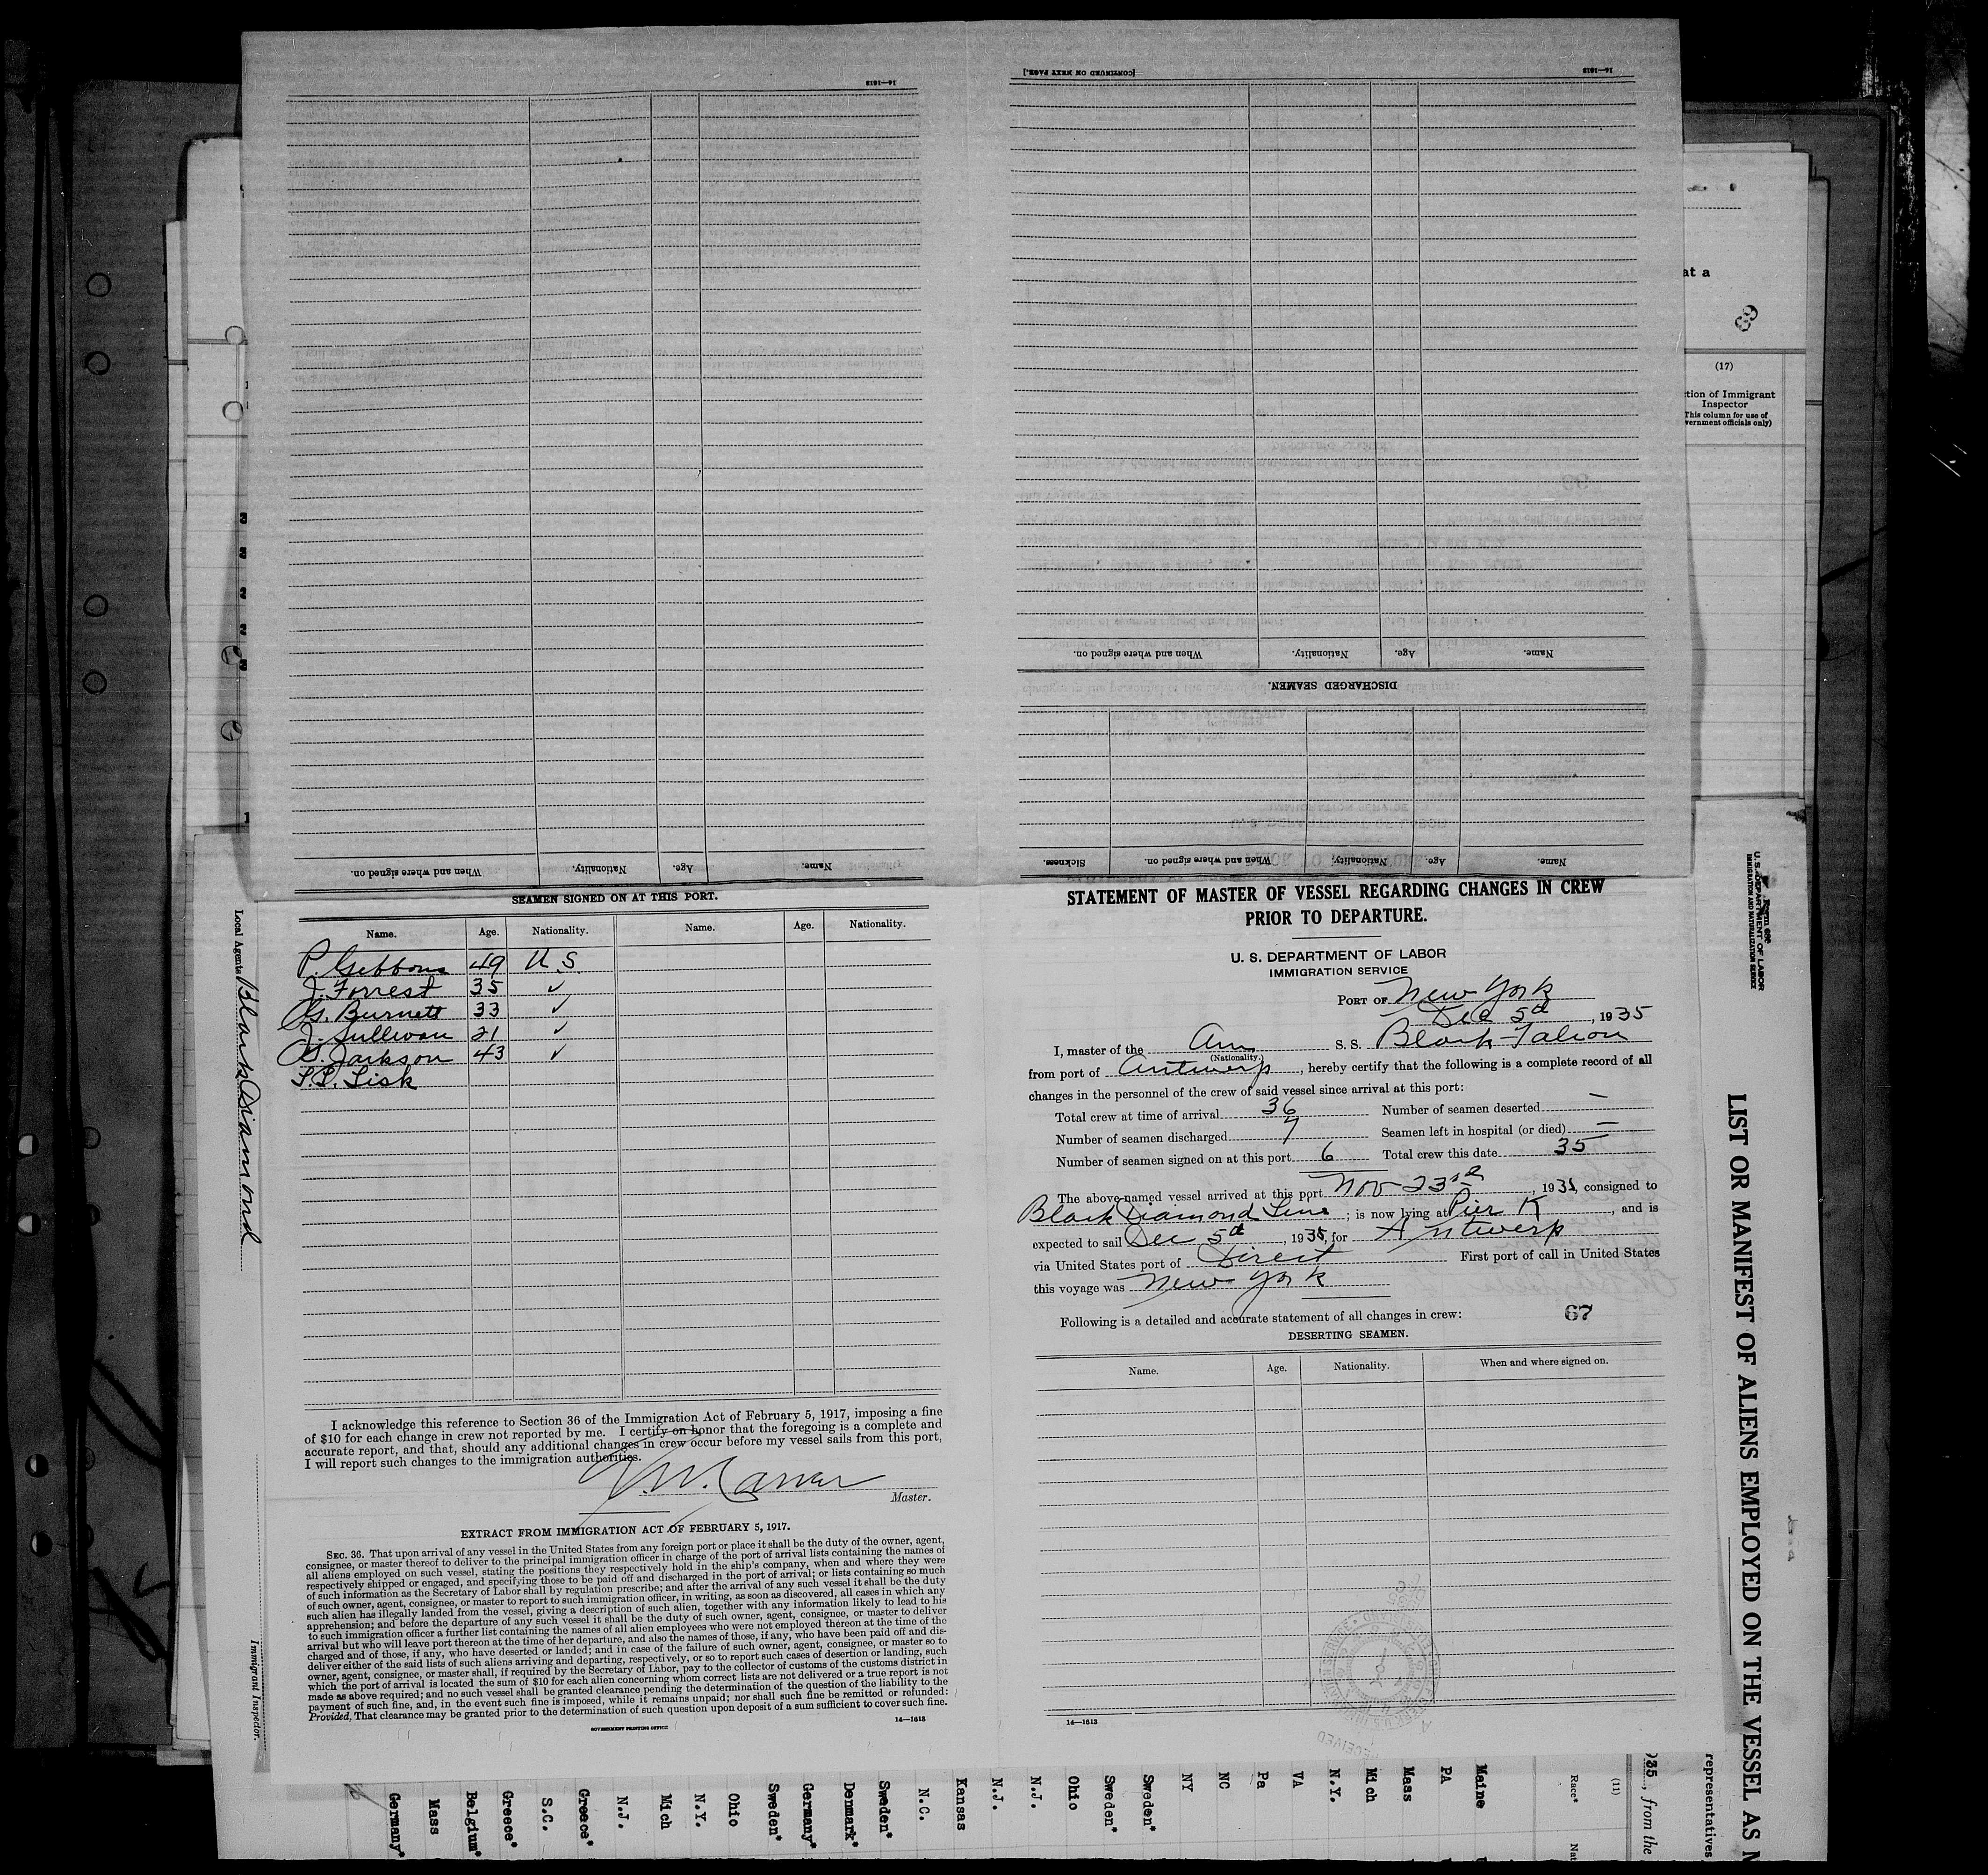 14—1613
[CONTINUED ON NEXT PAGE.]
14—1613
When and where signed on. Nationality. Age. Name.
DISCHARGED SEAMEN.
Sickness. When and where signed on. Nationality. Age. Name.
When and where signed on. Nationality. Age. Name.
at a
(17)
tion of Immigrant
Inspector
This column for use of
vernment officials only)
SEAMEN SIGNED ON AT THIS PORT.
Name. Age. Nationality. Name. Age. Nationality.
P. Gibbons 49 U S
J. Forrest 35 ✓
G. Burnett 33 ✓
J. Sullivan 21 ✓
G. Jackson 43 ✓
S.L. Sisk
I acknowledge this reference to Section 36 of the Immigration Act of February 5, 1917, imposing a fine
of $10 for each change in crew not reported by me. I certify on honor that the foregoing is a complete and
accurate report, and that, should any additional changes in crew occur before my vessel sails from this port,
I will report such changes to the immigration authorities.
Master.
EXTRACT FROM IMMIGRATION ACT OF FEBRUARY 5, 1917.
SEC. 36. That upon arrival of any vessel in the United States from any foreign port or place it shall be the duty of the owner, agent,
consignee, or master thereof to deliver to the principal immigration officer in charge of the port of arrival lists containing the names of
all aliens employed on such vessel, stating the positions they respectively hold in the ship's company, when and where they were
respectively shipped or engaged, and specifying those to be paid off and discharged in the port of arrival; or lists containing so much
of such information as the Secretary of Labor shall by regulation prescribe; and after the arrival of any such vessel it shall be the duty
of such owner, agent, consignee, or master to report to such immigration officer, in writing, as soon as discovered, all cases in which any
such alien has illegally landed from the vessel, giving a description of such alien, together with any information likely to lead to his
apprehension; and before the departure of any such vessel it shall be the duty of such owner, agent, consignee, or master to deliver
to such immigration officer a further list containing the names of all alien employees who were not employed thereon at the time of the
arrival but who will leave port thereon at the time of her departure, and also the names of those, if any, who have been paid off and dis-
charged and of those, if any, who have deserted or landed; and in case of the failure of such owner, agent, consignee, or master so to
deliver either of the said lists of such aliens arriving and departing, respectively, or so to report such cases of desertion or landing, such
owner, agent, consignee, or master shall, if required by the Secretary of Labor, pay to the collector of customs of the customs district in
which the port of arrival is located the sum of $10 for each alien concerning whom correct lists are not delivered or a true report is not
made as above required; and no such vessel shall be granted clearance pending the determination of the question of the liability to the
payment of such fine, and, in the event such fine is imposed, while it remains unpaid; nor shall such fine be remitted or refunded:
Provided, That clearance may be granted prior to the determination of such question upon deposit of a sum sufficient to cover such fine.
GOVERNMENT PRINTING OFFICE
14—1613
STATEMENT OF MASTER OF VESSEL REGARDING CHANGES IN CREW
PRIOR TO DEPARTURE.
U. S. DEPARTMENT OF LABOR
IMMIGRATION SERVICE
PORT OF New York
Dec 5th, 1935
I, master of the Am S. S. Black Falcon
(Nationality.)
from port of Antwerp, hereby certify that the following is a complete record of all
changes in the personnel of the crew of said vessel since arrival at this port:
Total crew at time of arrival 36 Number of seamen deserted —
Number of seamen discharged 7 Seamen left in hospital (or died) —
Number of seamen signed on at this port 6 Total crew this date 35
The above-named vessel arrived at this port Nov 23rd, 1935, consigned to
Black Diamond Line; is now lying at Pier K, and is
expected to sail Dec 5th, 1935, for Antwerp
via United States port of Direct First port of call in United States
this voyage was New York
Following is a detailed and accurate statement of all changes in crew: 67
DESERTING SEAMEN.
Name. Age. Nationality. When and where signed on.
14—1613
RECEIVED
Local Agents Black Diamond
Immigrant Inspector.
U. S. DEPARTMENT OF LABOR
IMMIGRATION AND NATURALIZATION SERVICE
LIST OR MANIFEST OF ALIENS EMPLOYED ON THE VESSEL AS M
representatives
935, from the
(11)
Race*
Nat
Germany*
Mass
Belgium*
Greece*
S.C.
Greece*
N.J.
Mich
N.Y.
Ohio
Sweden*
Germany*
Denmark*
Sweden*
N.C.
Kansas
N.J.
N.J.
Ohio
Sweden*
Sweden*
NY
NC
Pa
VA
N.Y.
Mich
Mass
PA
Maine